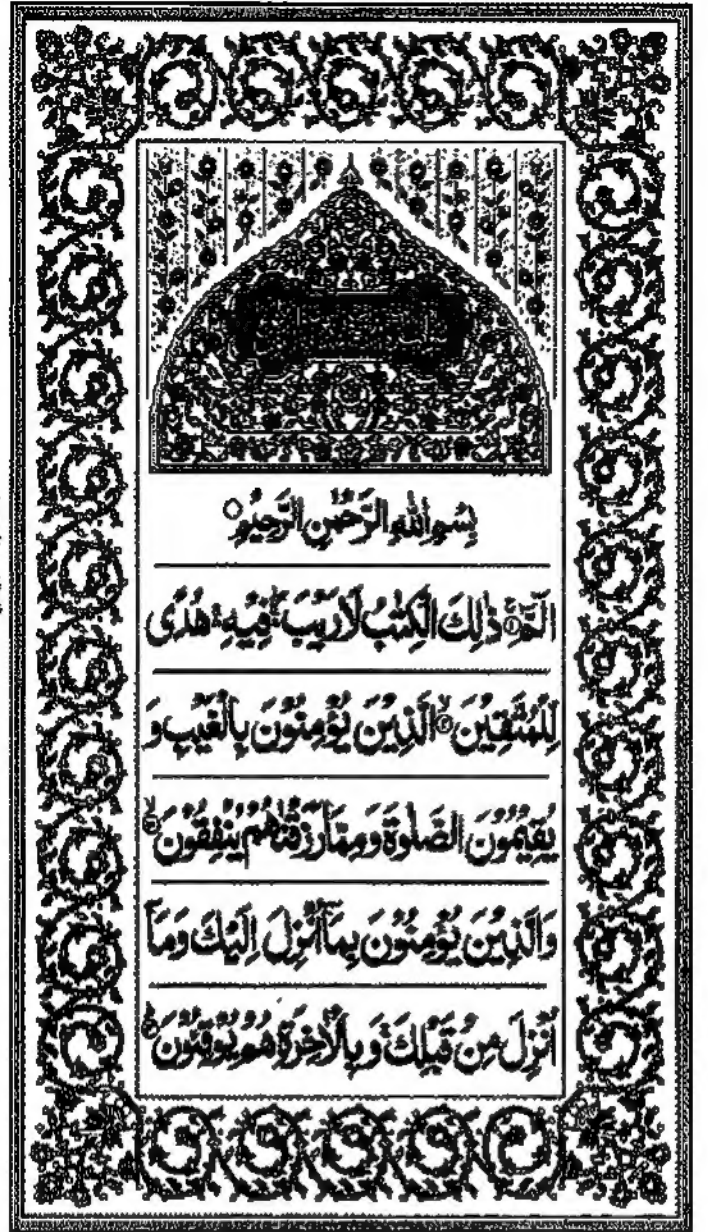 بِسْمِ اللهِ الرَّحْمٰنِ الرَّحِيْمِ
الٓمّٓ ۚ ① ذٰلِكَ الْكِتٰبُ لَا رَيْبَ ۛۖ فِيْهِ ۛۚ هُدًى
لِّلْمُتَّقِيْنَ ۙ ② الَّذِيْنَ يُؤْمِنُوْنَ بِالْغَيْبِ وَ
يُقِيْمُوْنَ الصَّلٰوةَ وَمِمَّا رَزَقْنٰهُمْ يُنْفِقُوْنَ ۙ ③
وَالَّذِيْنَ يُؤْمِنُوْنَ بِمَآ اُنْزِلَ اِلَيْكَ وَمَآ
اُنْزِلَ مِنْ قَبْلِكَ ۚ وَبِالْاٰخِرَةِ هُمْ يُوْقِنُوْنَ ۗ ④